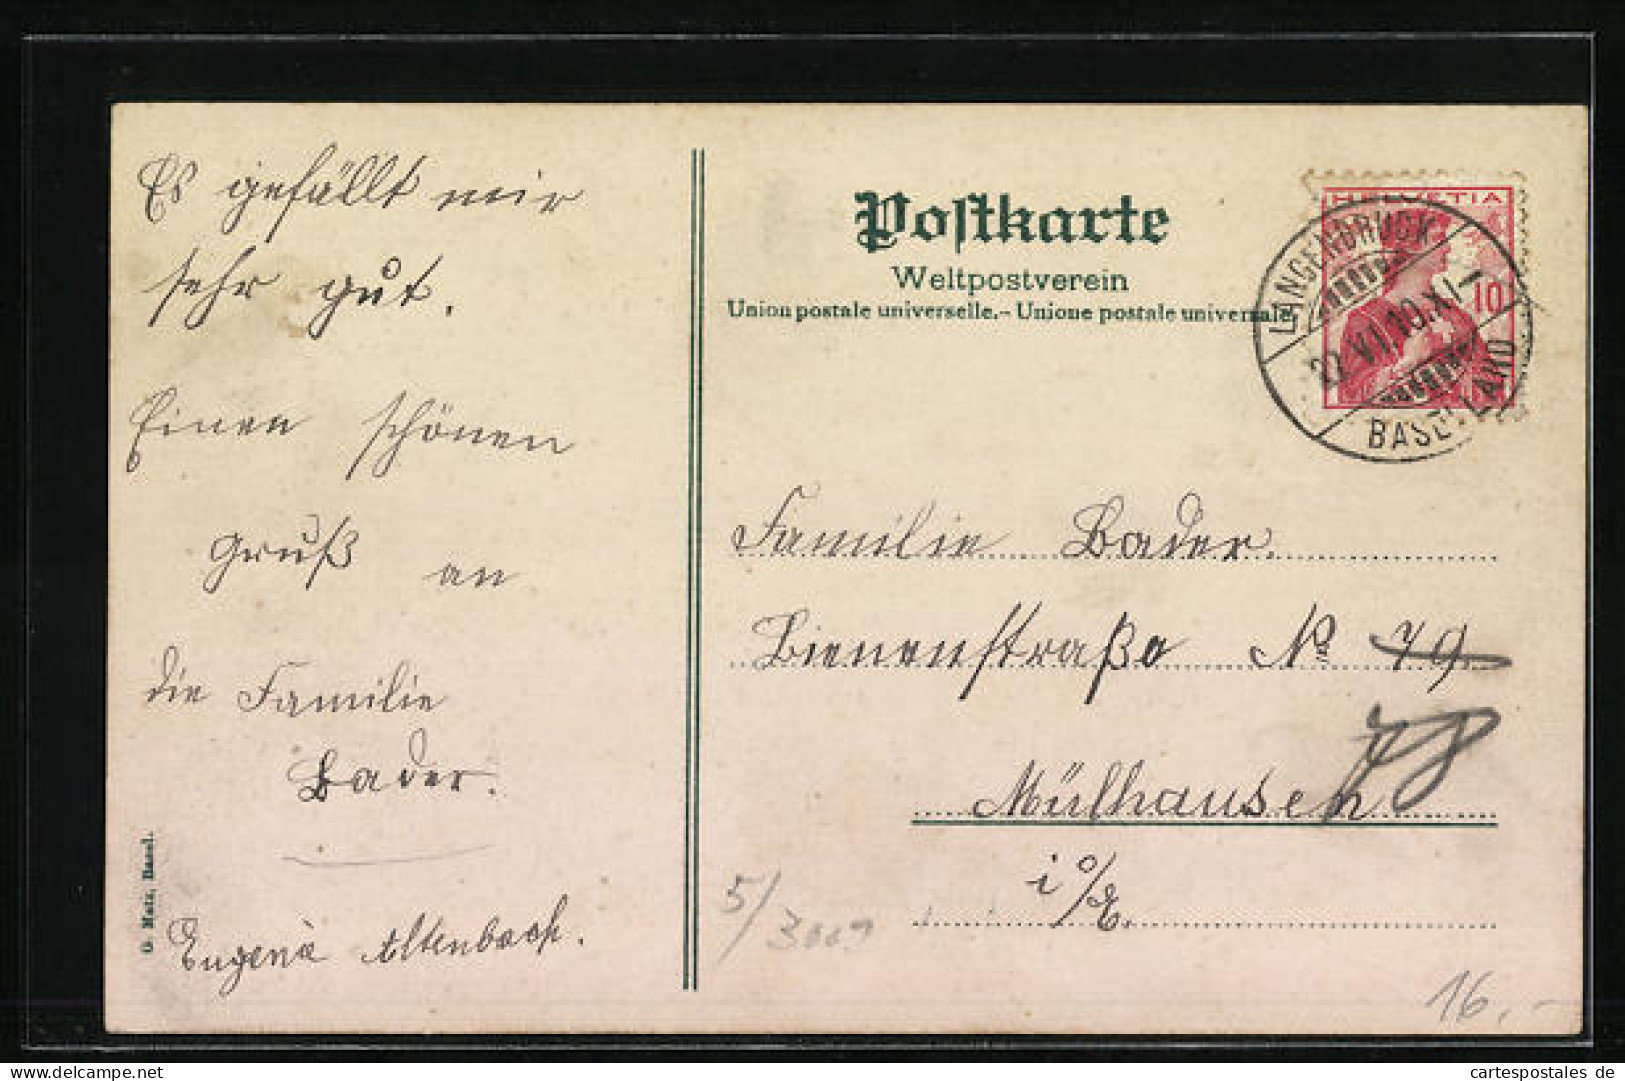 Es gefällt mir
sehr gut.
Einen schönen
Gruß an
die Familie
Bader.
Eugenia Altenbach.
G. Metz, Basel.
Postkarte
Weltpostverein
Union postale universelle.- Unione postale universale.
HELVETIA
10
LANGENBRUCK
22.VI.10.XI-
BASELLAND
Familie Bader.
Bienenstraße No 79
78
Mülhausen
i/E.
5/3009
16.-
cartespostales de